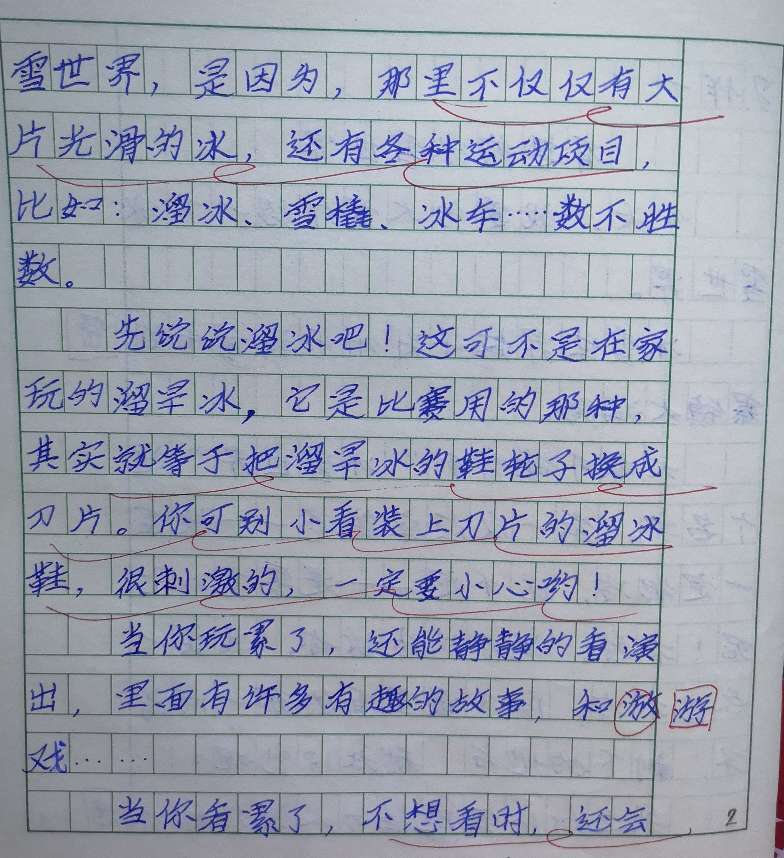 雪世界，是因为，那里不仅仅有大
片光滑的冰，还有各种运动项目，
比如：溜冰、雪橇、冰车……数不胜
数。
先说说溜冰吧！这可不是在家
玩的溜旱冰，它是比赛用的那种，
其实就等于把溜旱冰的鞋轮子换成
刀片。你可别小看装上刀片的溜冰
鞋，很刺激的，一定要小心哟！
当你玩累了，还能静静的看演
出，里面有许多有趣的故事，和游 游
戏……
当你看累了，不想看时，还会
2